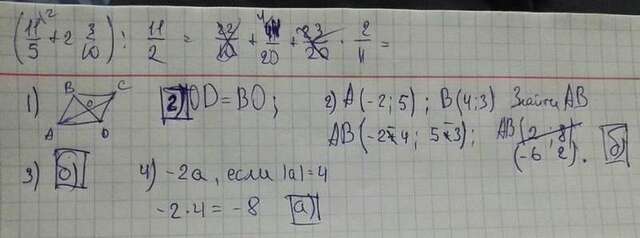 (11/5 + 2 3/10) : 11/2 = 22/10 + 11/20 + 23/20 · 2/11 =
1) B C O A D г) OD = BO; 2) A(-2; 5); B(4; 3) Знайти AB
AB(-2-4; 5-3); AB(2; 8) (-6; 2). б)
3) б) 4) -2a, если |a| = 4
-2·4 = -8 а)